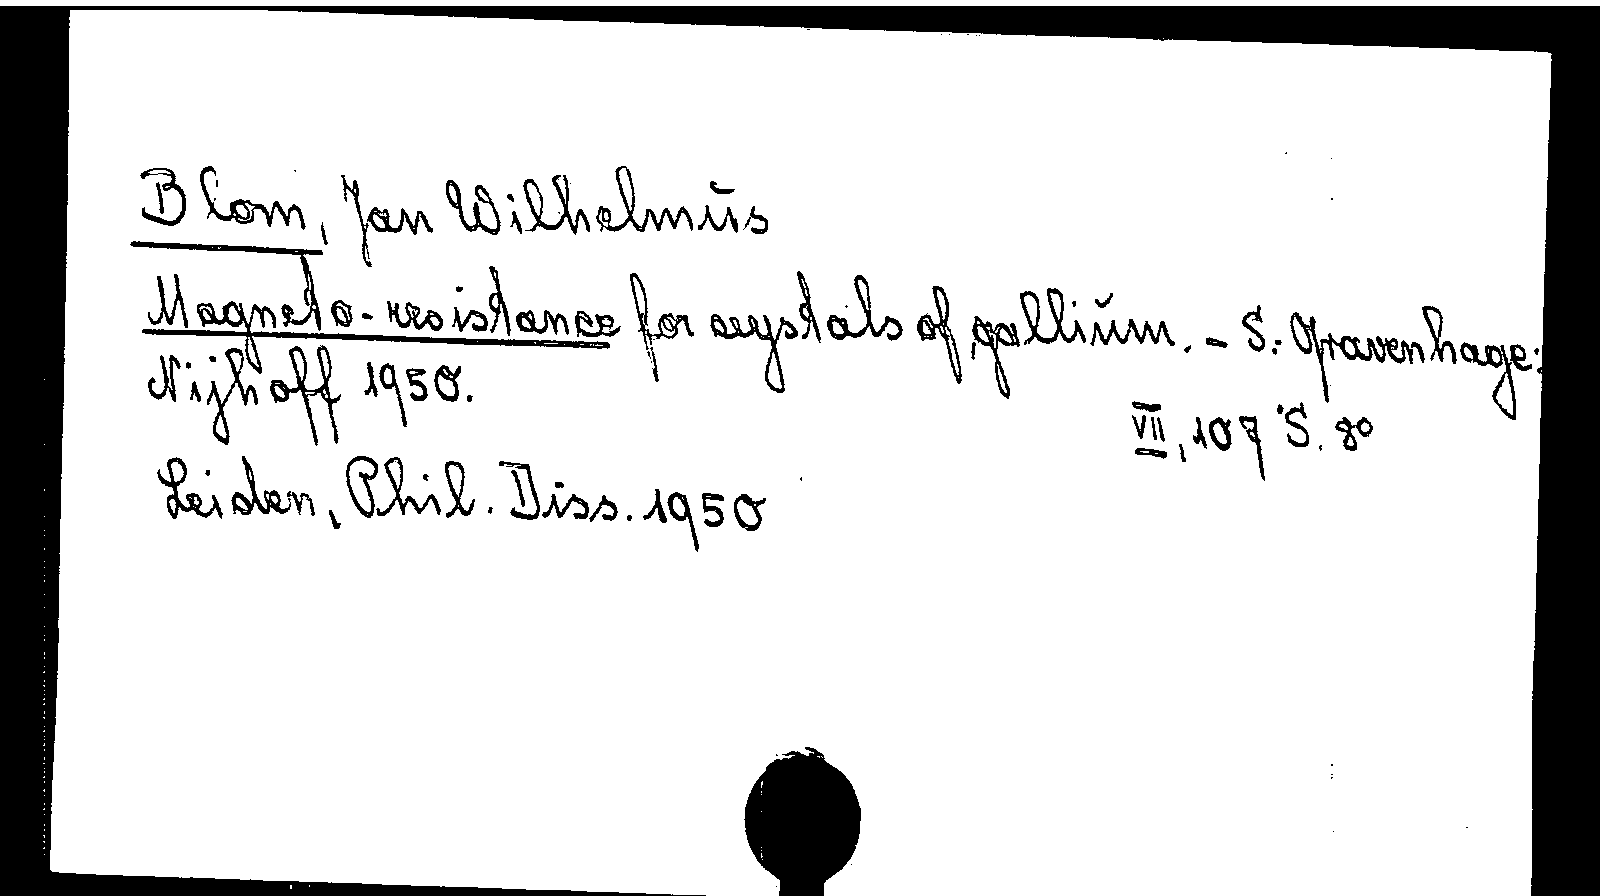 Blom, Jan Wilhelmus
Magneto-resistance for crystals of gallium. - S.-Gravenhage:
Nijhoff 1950.
VII, 107 S. 8°
Leiden, Phil. Diss. 1950